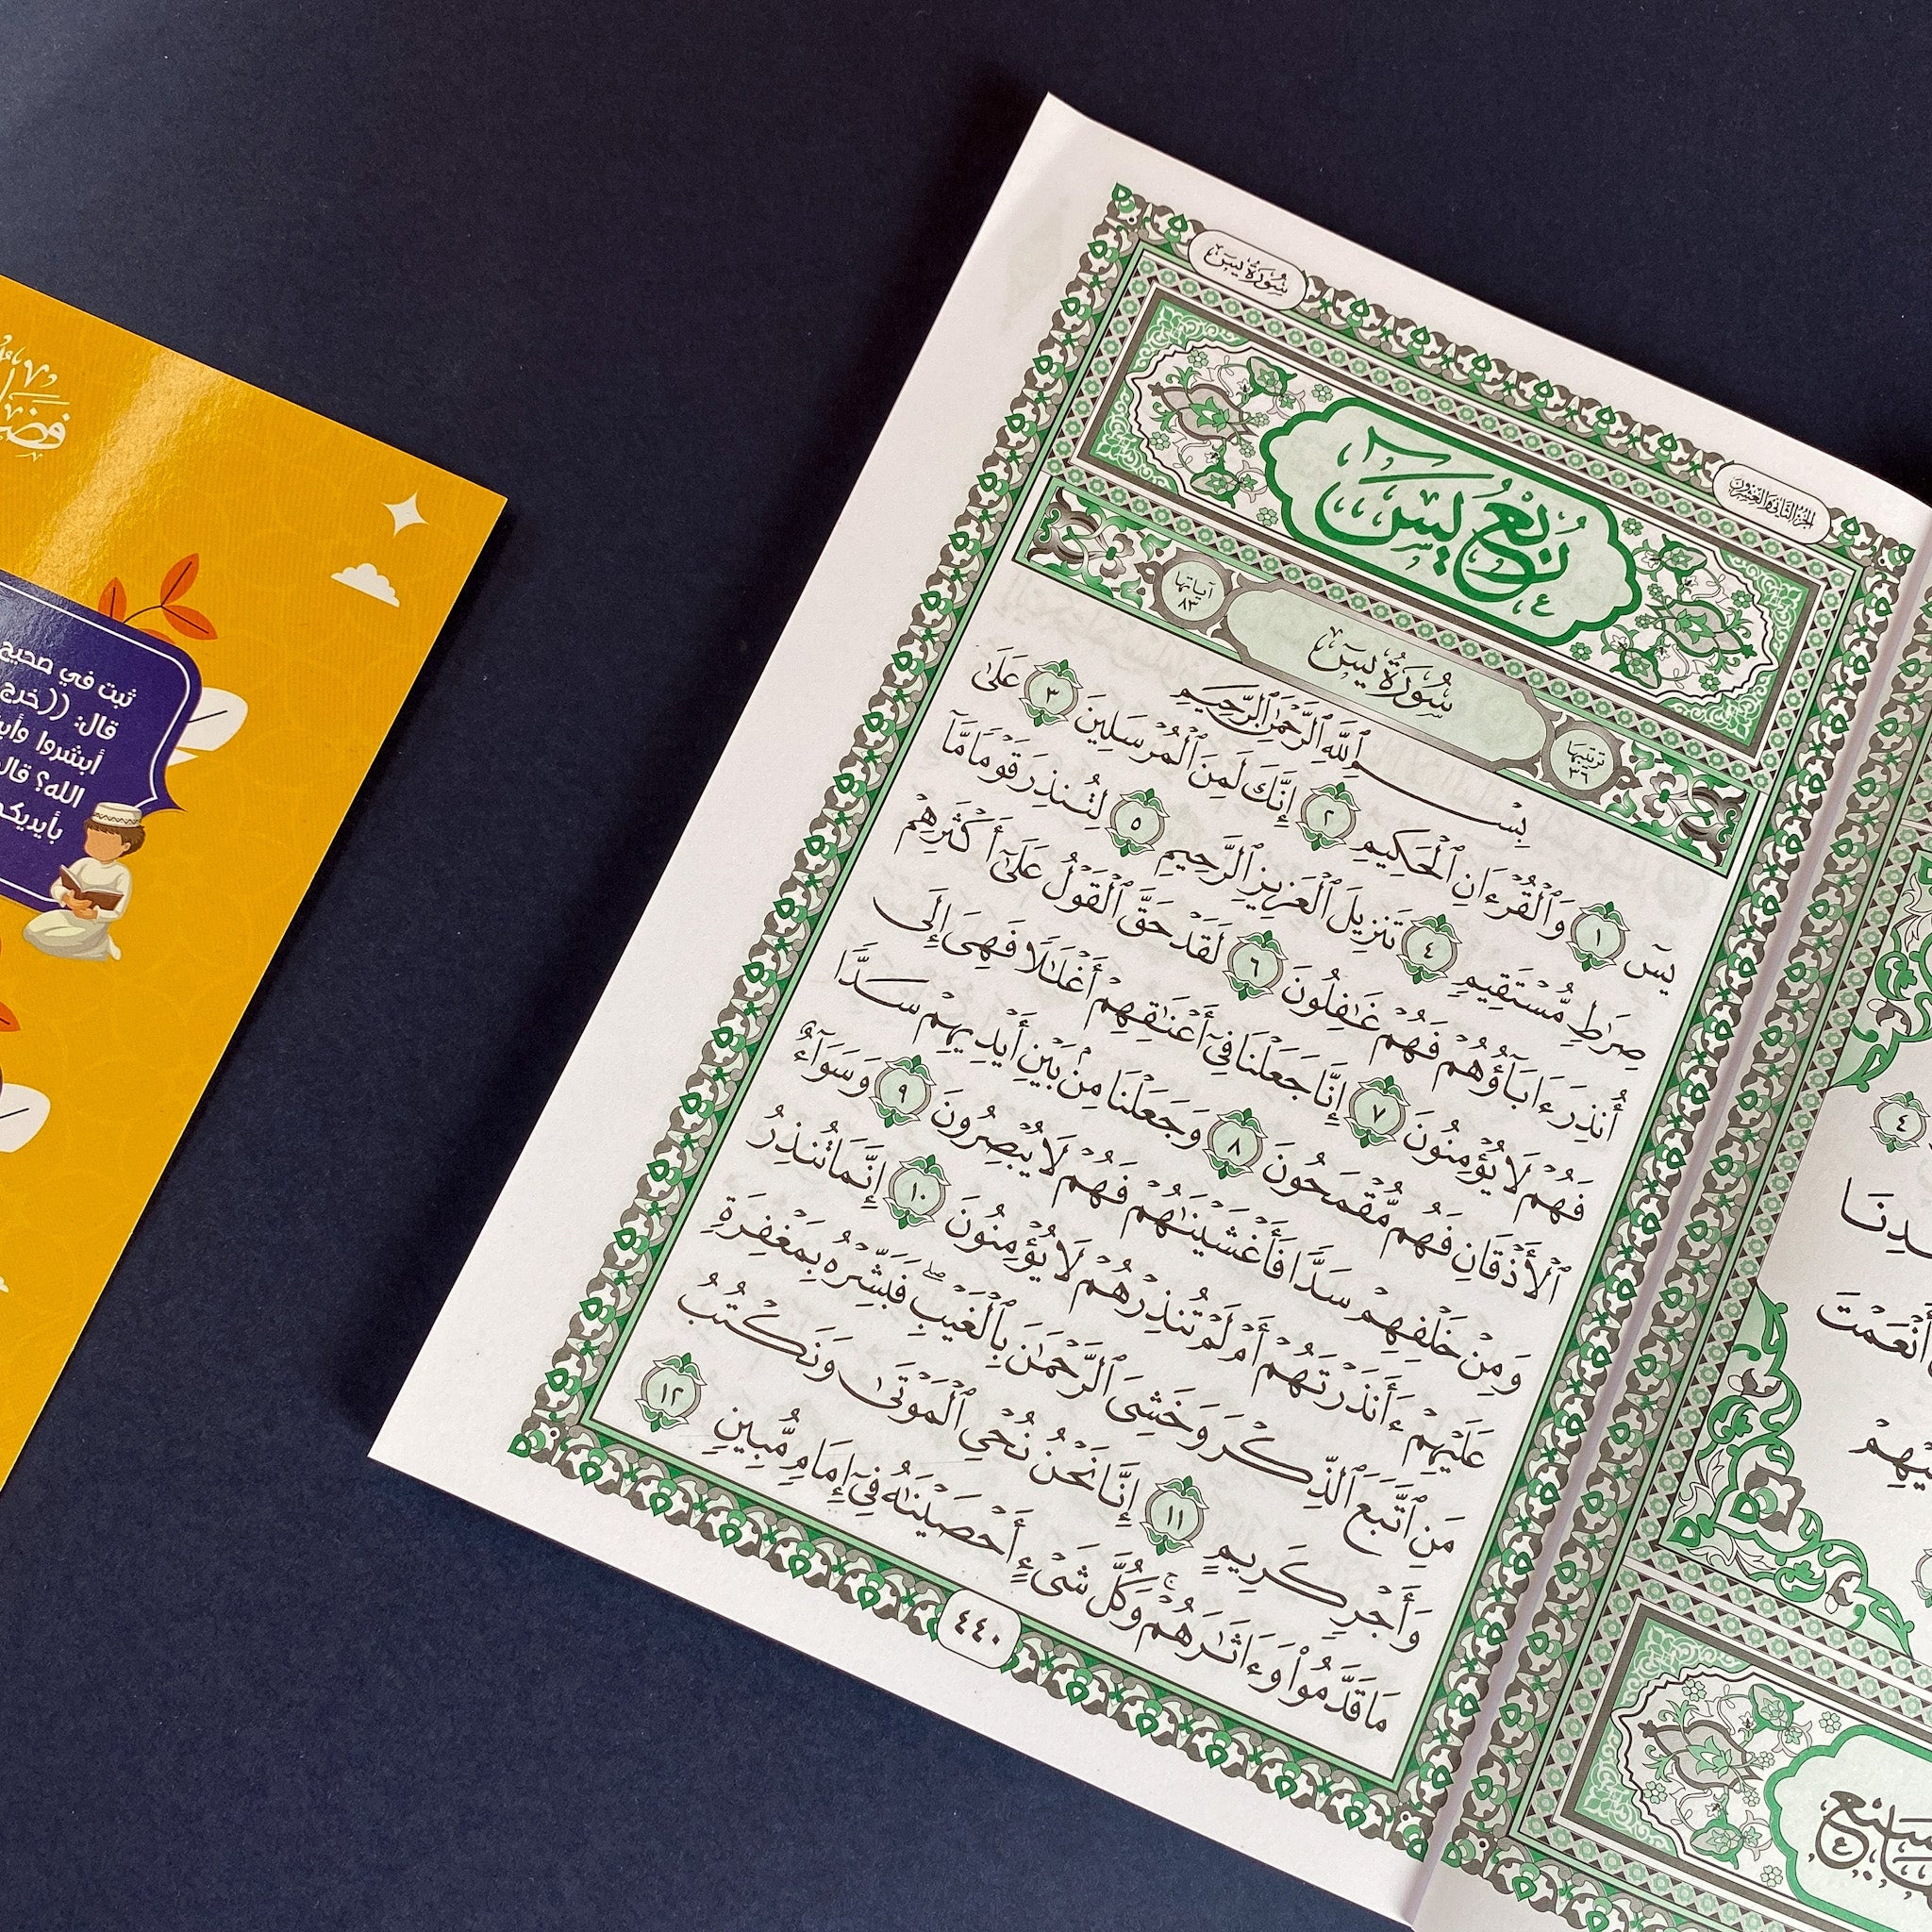 سُورَةُ يسٓ
الجزء الثاني والعشرون
رُبْعُ يسٓ
آياتها
٨٣
سُورَةُ يسٓ
ترتيبها
٣٦
بِسْمِ ٱللَّهِ ٱلرَّحْمَٰنِ ٱلرَّحِيمِ
يسٓ ١ وَٱلْقُرْءَانِ ٱلْحَكِيمِ ٢ إِنَّكَ لَمِنَ ٱلْمُرْسَلِينَ ٣ عَلَىٰ
صِرَٰطٍ مُّسْتَقِيمٍ ٤ تَنزِيلَ ٱلْعَزِيزِ ٱلرَّحِيمِ ٥ لِتُنذِرَ قَوْمًا مَّآ
أُنذِرَ ءَابَآؤُهُمْ فَهُمْ غَٰفِلُونَ ٦ لَقَدْ حَقَّ ٱلْقَوْلُ عَلَىٰٓ أَكْثَرِهِمْ
فَهُمْ لَا يُؤْمِنُونَ ٧ إِنَّا جَعَلْنَا فِىٓ أَعْنَٰقِهِمْ أَغْلَٰلًا فَهِىَ إِلَى
ٱلْأَذْقَانِ فَهُم مُّقْمَحُونَ ٨ وَجَعَلْنَا مِنۢ بَيْنِ أَيْدِيهِمْ سَدًّا
وَمِنْ خَلْفِهِمْ سَدًّا فَأَغْشَيْنَٰهُمْ فَهُمْ لَا يُبْصِرُونَ ٩ وَسَوَآءٌ
عَلَيْهِمْ ءَأَنذَرْتَهُمْ أَمْ لَمْ تُنذِرْهُمْ لَا يُؤْمِنُونَ ١٠ إِنَّمَا تُنذِرُ
مَنِ ٱتَّبَعَ ٱلذِّكْرَ وَخَشِىَ ٱلرَّحْمَٰنَ بِٱلْغَيْبِ ۖ فَبَشِّرْهُ بِمَغْفِرَةٍ
وَأَجْرٍ كَرِيمٍ ١١ إِنَّا نَحْنُ نُحْىِ ٱلْمَوْتَىٰ وَنَكْتُبُ
مَا قَدَّمُوا۟ وَءَاثَٰرَهُمْ ۚ وَكُلَّ شَىْءٍ أَحْصَيْنَٰهُ فِىٓ إِمَامٍ مُّبِينٍ ١٢
٤٤٠
٤
أَنْعَمْتَ
ثبت في صحيح
قال: ((خرج
أبشروا
الله؟